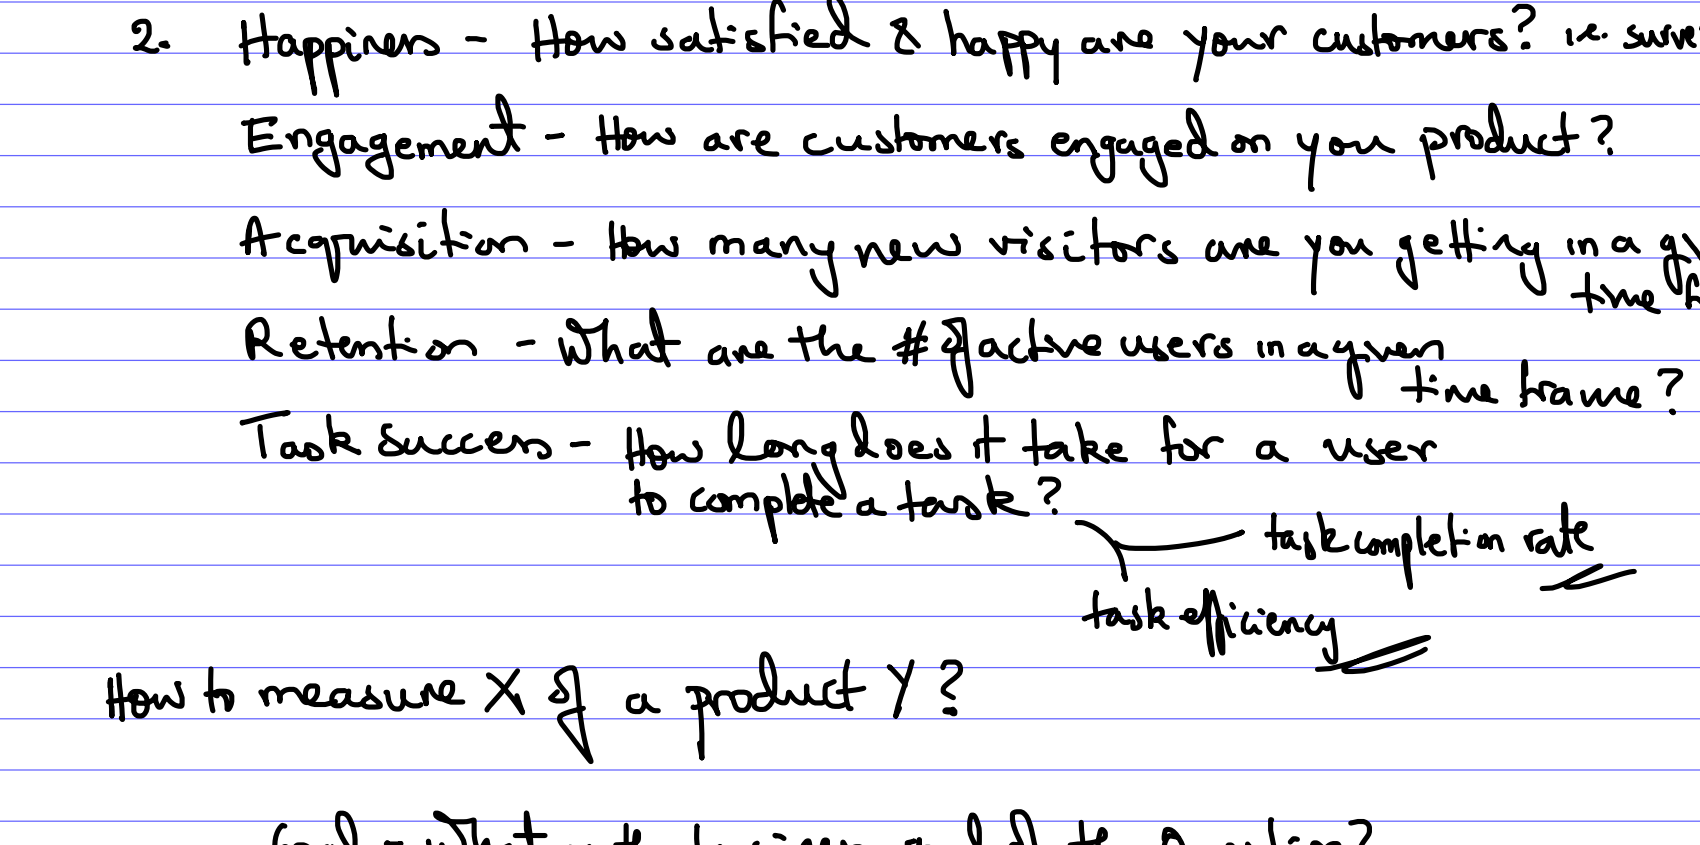 2. Happiness - How satisfied & happy are your customers? i.e. surve
Engagement - How are customers engaged on you product?
Acquisition - How many new visitors are you getting in a gi
time f
Retention - What are the # of active users in a given
time frame?
Task success - How long does it take for a user
to complete a task?
task completion rate
task efficiency
How to measure X of a product Y?
Goal - What